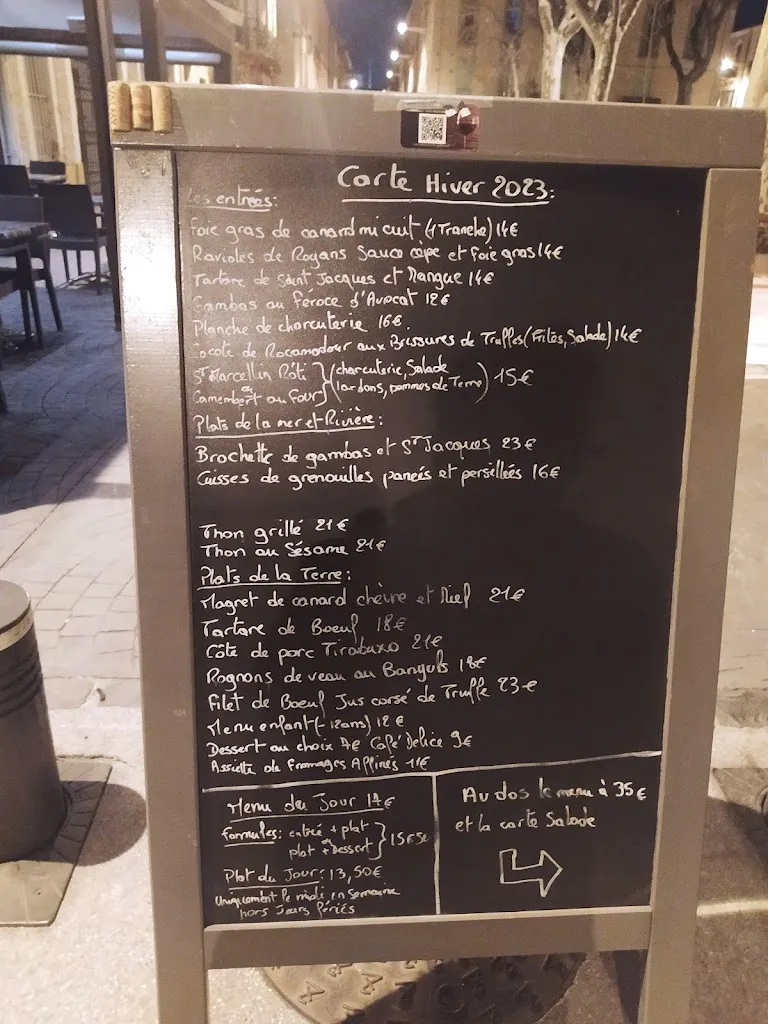 Carte Hiver 2023:
Les entrées:
Foie gras de canard mi cuit (1 Tranche) 14€
Ravioles de Royans Sauce cèpe et foie gras 14€
Tartare de Saint Jacques et Mangue 14€
Gambas au féroce d'Avocat 12€
Planche de charcuterie 16€.
Cocote de Rocamadour aux Brissures de Truffes (Frites, Salade) 14€
St Marcellin Rôti } (charcuterie, Salade
ou
Camembert au four } lardons, pommes de Terre) 15€
Plats de la mer et Rivière:
Brochette de gambas et St Jacques 23€
Cuisses de grenouilles paneés et persellées 16€
Thon grillé 21€
Thon au Sésame 21€
Plats de la Terre:
Magret de canard chèvre et Miel 21€
Tartare de Boeuf 18€
Côte de porc Tirabuxo 21€
Rognons de veau au Banyuls 18€
Filet de Boeuf Jus corsé de Truffe 23€
Menu enfant (-12ans) 12€
Dessert au choix 7€ Café Délice 9€
Assiette de Fromages Affinés 11€
Menu du Jour 17€
Formules: entrée + plat
ou
plat + Dessert } 15€50
Plat du Jour: 13,50€
Uniquement le midi en semaine
hors Jours fériés
Au dos le menu à 35€
et la carte Salade